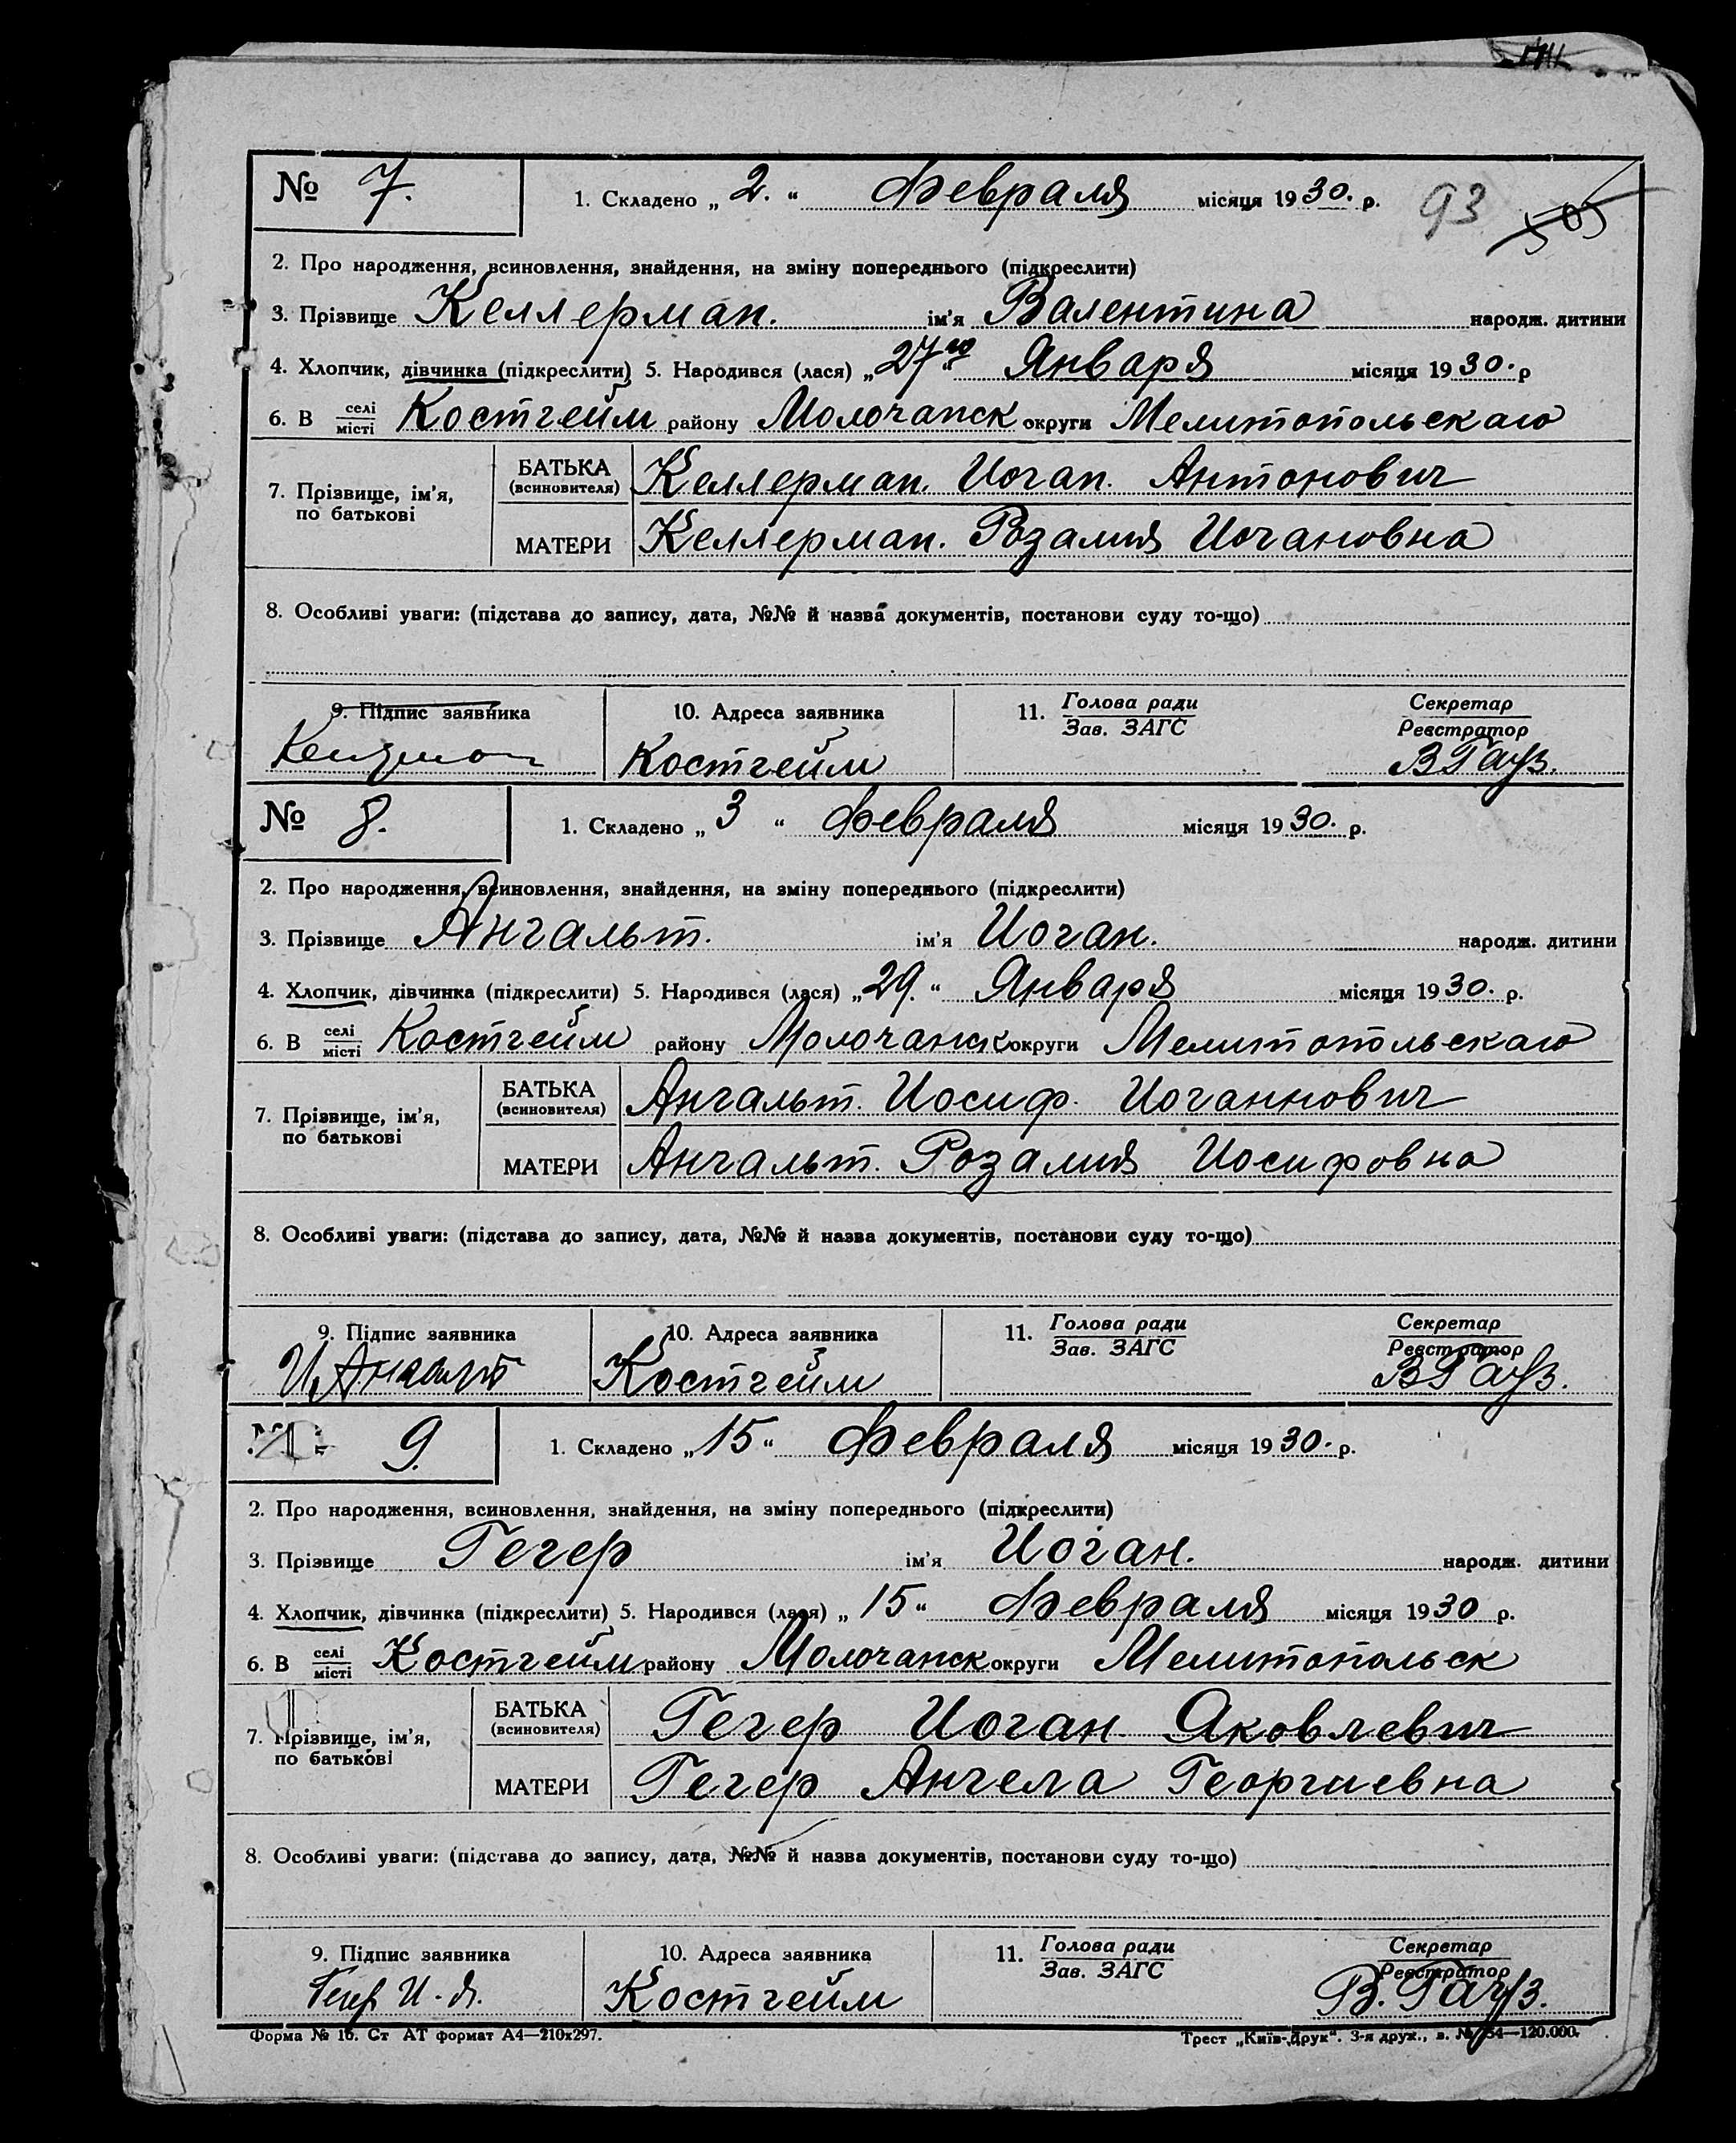 № 7. 1. Складено „ 2. “ Февраля місяця 1930. р. 93 505
2. Про народження, всиновлення, знайдення, на зміну попереднього (підкреслити)
3. Прізвище Келлерман. ім'я Валентина народж. дитини
4. Хлопчик, дівчинка (підкреслити) 5. Народився (лася) „27го“ Января місяця 1930. р
6. В селі місті Костгейм району Молочанск округи Мелитопольскаго
7. Прізвище, ім'я, по батькові
БАТЬКА (всиновителя) Келлерман. Иоган. Антонович
МАТЕРИ Келлерман. Розалия Иогановна
8. Особливі уваги: (підстава до запису, дата, №№ й назва документів, постанови суду то-що)
9. Підпис заявника 10. Адреса заявника 11. Голова ради Зав. ЗАГС Секретар Реєстратор
Костгейм В Гауз.
№ 8. 1. Складено „ 3 “ Февраля місяця 1930. р.
2. Про народження, всиновлення, знайдення, на зміну попереднього (підкреслити)
3. Прізвище Ангальт. ім'я Иоган. народж. дитини
4. Хлопчик, дівчинка (підкреслити) 5. Народився (лася) „29.“ Января місяця 1930. р.
6. В селі місті Костгейм району Молочанск округи Мелитопольскаго
7. Прізвище, ім'я, по батькові
БАТЬКА (всиновителя) Ангальт. Иосиф. Иоганнович
МАТЕРИ Ангальт. Розалия Иосифовна
8. Особливі уваги: (підстава до запису, дата, №№ й назва документів, постанови суду то-що)
9. Підпис заявника 10. Адреса заявника 11. Голова ради Зав. ЗАГС Секретар Реєстратор
И. Ангальт Костгейм В Гауз.
№ 9. 1. Складено „15“ Февраля місяця 1930. р.
2. Про народження, всиновлення, знайдення, на зміну попереднього (підкреслити)
3. Прізвище Гегер ім'я Иоган. народж. дитини
4. Хлопчик, дівчинка (підкреслити) 5. Народився (лася) „ 15“ Февраля місяця 1930 р.
6. В селі місті Костгейм району Молочанск округи Мелитопольск
7. Прізвище, ім'я, по батькові
БАТЬКА (всиновителя) Гегер Иоган Яковлевич
МАТЕРИ Гегер Ангела Георгиевна
8. Особливі уваги: (підстава до запису, дата, №№ й назва документів, постанови суду то-що)
9. Підпис заявника 10. Адреса заявника 11. Голова ради Зав. ЗАГС Секретар Реєстратор
Гегер И. Я. Костгейм В. Гауз.
Форма № 16. Ст АТ формат А4—210х297. Трест „Київ-Друк“. 3-я друк., в. № 54—120.000.